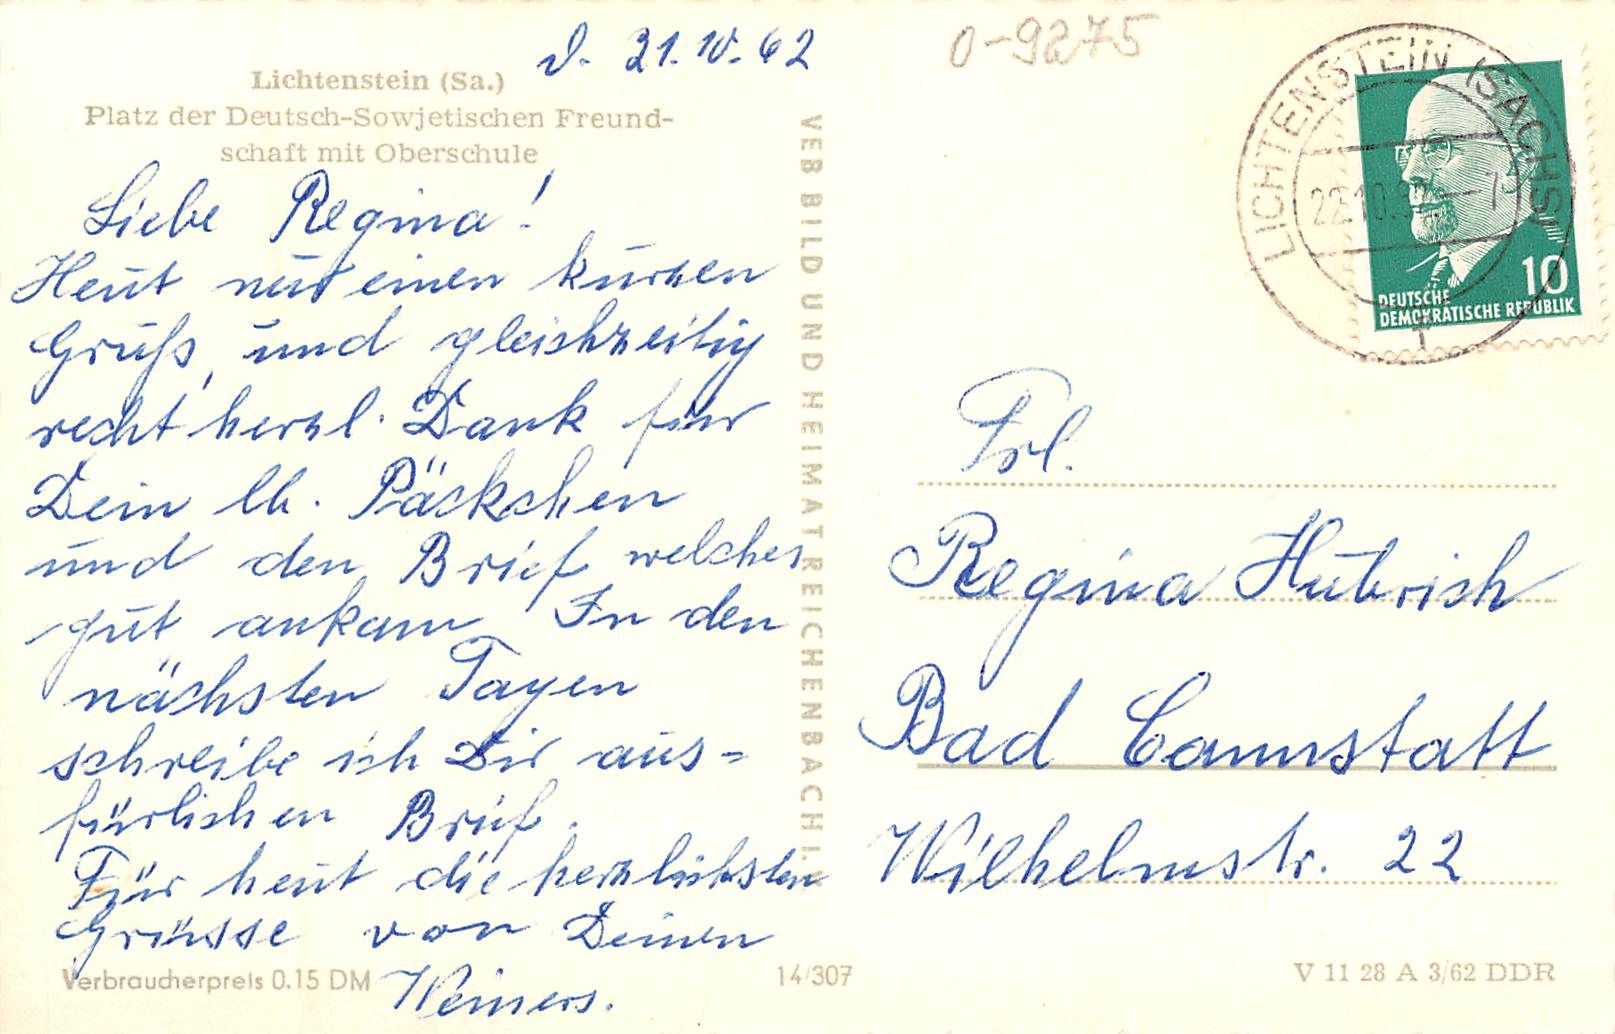 d. 21.10.62
0-9275
Lichtenstein (Sa.)
Platz der Deutsch-Sowjetischen Freund-
schaft mit Oberschule
Liebe Regina!
Heut nur einen kurzen
Gruß, und gleichzeitig
recht herzl. Dank für
Dein lb. Päckchen
und den Brief welches
gut ankam. In den
nächsten Tagen
schreibe ich Dir aus=
fürlichen Brief.
Für heut die herzlichsten
Grüsse von Deinen
Weiners.
Verbraucherpreis 0.15 DM
VEB BILD UND HEIMAT REICHENBACH I. V.
14/307
LICHTENSTEIN (SACHS)
22.10.62 - 7
10
DEUTSCHE
DEMOKRATISCHE REPUBLIK
Frl.
Regina Hubrich
Bad Cannstatt
Wilhelmstr. 22
V 11 28 A 3/62 DDR